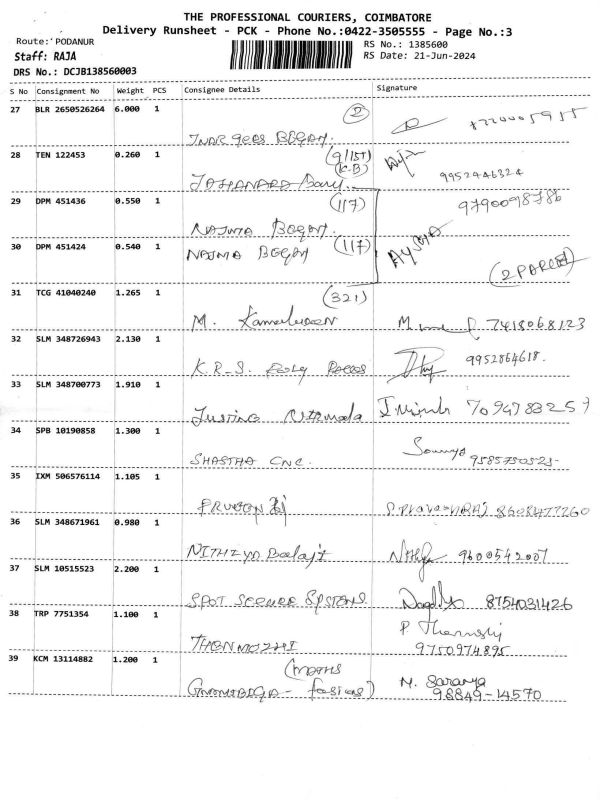 THE PROFESSIONAL COURIERS, COIMBATORE
Delivery Runsheet - PCK - Phone No.:0422-3505555 - Page No.:3
Route: PODANUR
RS No.: 1385600
Staff: RAJA
RS Date: 21-Jun-2024
DRS No.: DCJB138560003
S No Consignment No Weight PCS Consignee Details Signature
27 BLR 2650526264 6.000 1
28 TEN 122453 0.260 1
9952946324
29 DPM 451436 0.550 1 (117) 9790098786
NAJMA BEGAM
30 DPM 451424 0.540 1 (117)
NAJMA BEGAM
(2 PARCEL)
31 TCG 41040240 1.265 1 (321)
M. 7418068123
32 SLM 348726943 2.130 1
K.R.S. 9952864618.
33 SLM 348700773 1.910 1
7094783259
34 SPB 10190858 1.300 1
SHASTHA CNC. Sowmya 9585750525
35 IXM 506576114 1.105 1
8608477260
36 SLM 348671961 0.980 1
Balaji 9600542007
37 SLM 10515523 2.200 1
SPOT 8754031426
38 TRP 7751354 1.100 1
THENMOZHI P. 9750974895
39 KCM 13114882 1.200 1
M. Saranya
98849-14570